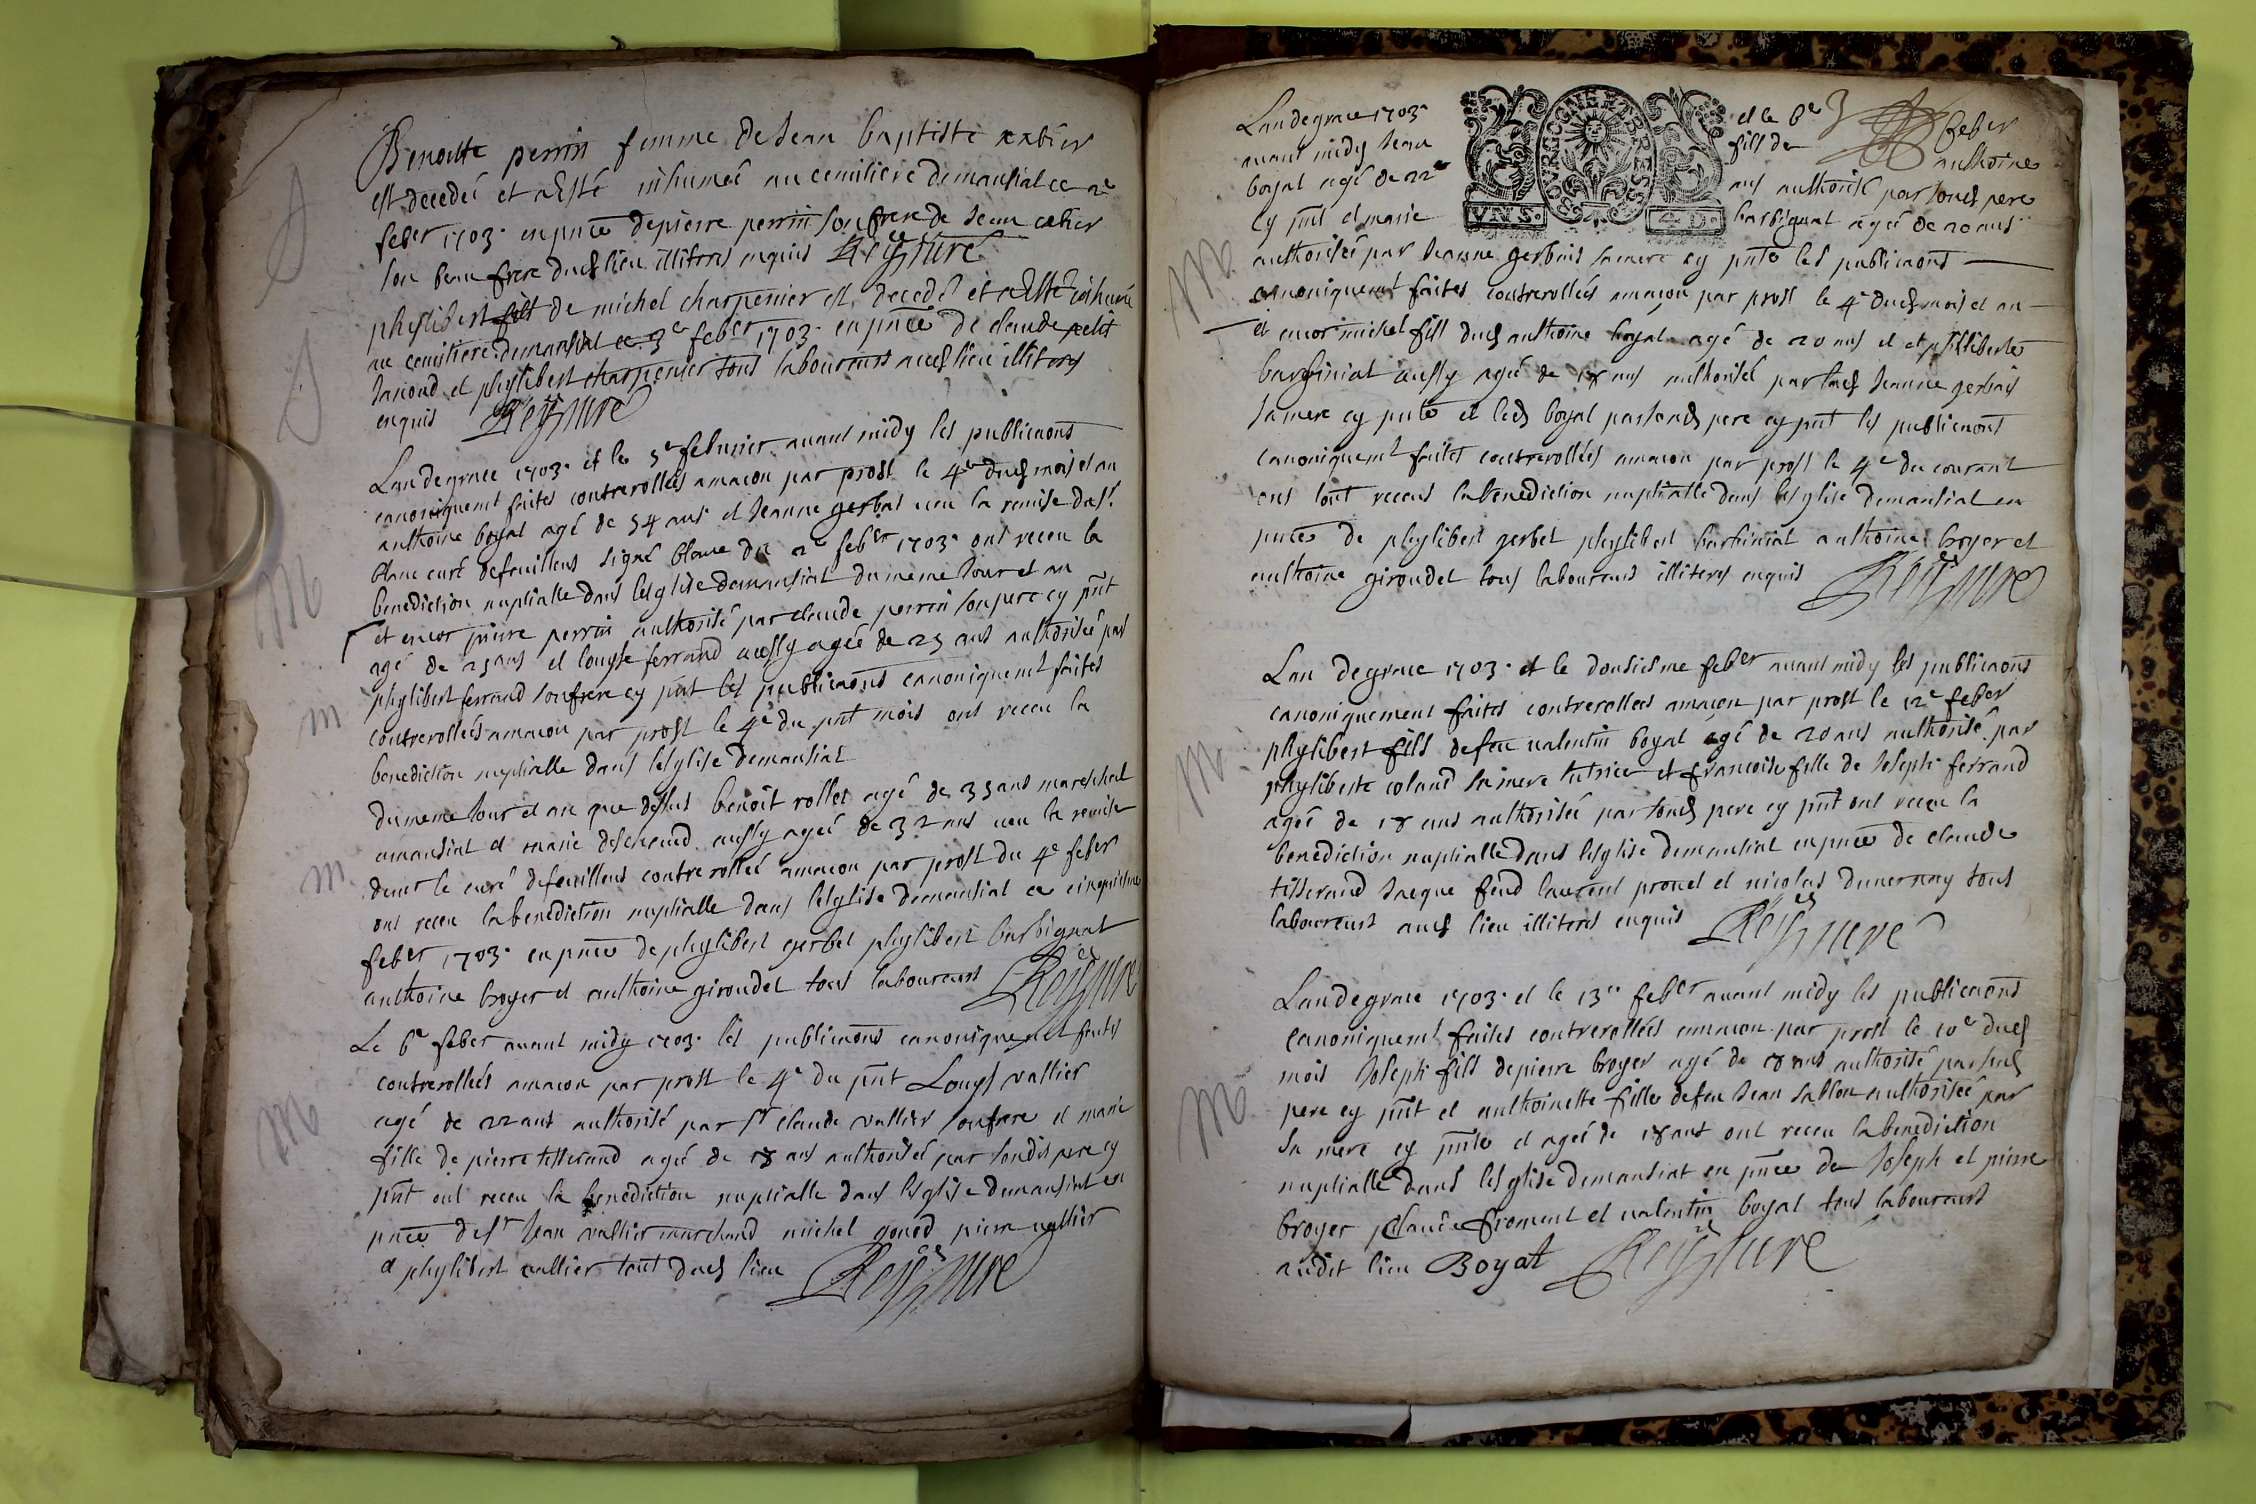 Benoitte perrin femme de Jean baptiste
est decedée et a Esté inhumée au cemitiere demansiat ce 2e
feber 1703. en pnce depierre perrin son frere de Jean
son beau frere dud lieu illitres enquis
phylibert fils de michel charpentier est decedé et a Esté inhumé
au cemitiere demansiat ce 3e feber 1703. en pnce de claude petit
Janoud et phylibert charpentier tous laboureurs aud lieu illitres
enquis
Lan de grace 1703. et le 5e februier avant midy les publicaons
canoniquement faites controrollées amacon par prost le 4e dud mois et an
anthoine boyat agé de 54 ans et Jeanne gerbat veu la remise du sr
blanc curé defeuillens signé blanc du 2e feber 1703. ont receu la
benediction nuptialle dans leglise demansiat du meme Jour et an
et encor pierre perrin authorisé par claude perrin son pere cy pnt
agé de 25 ans et louyse ferrand aussy agée de 23 ans authorisée par
phylibert ferrand son frere cy pnt les publicaons canoniquement faites
controrollées amacon par prost le 4e du pnt mois ont receu la
benediction nuptialle dans leglise demansiat
du meme Jour et an que dessus benoit rollet agé de 35 ans mareschal
amansiat et marie deschaud aussy agée de 32 ans veu la remise
de mr le curé defeuillens controrollée amacon par prost du 4e feber
ont receu la benediction nuptialle dans leglise demansiat ce cinquiesme
feber 1703. en pnce de phylibert gerbet phylibert barbignat
anthoine broyer et anthoine giroudet tous laboureurs
Le 6e feber avant midy 1703. les publicaons canoniquement faites
controrollées amacon par prost le 4e du pnt Louys vallier
agé de 22 ans authorisé par sr claude vallier son frere et marie
fille de pierre tisserand agée de 18 ans authorisée par sondit pere cy
pnt ont receu la benediction nuptialle dans leglise demansiat en
pnce de sr Jean vallier marchand michel gonod pierre vallier
et phylibert vallier tout dud lieu
Lan de grace 1703. et le 6e feber
avant midy Jean fils de anthoine
boyat agé de 22 ans authorisé par sond pere
cy pnt et marie barbignat agée de 20 ans
authorisée par Jeanne gerbais sa mere cy pnte les publicaons
canoniquement faites controrollées amacon par prost le 4e dud mois et an
et encor michel fils dud anthoine boyat agé de 20 ans et et phyliberte
barbiniat aussy agée de 18 ans authorisée par lad Jeanne gerbais
sa mere cy pnte et led boyat par sond pere cy pnt les publicaons
canoniquement faites controrollées amacon par prost le 4e du courant
ons tout receus la benediction nuptialle dans leglise demansiat en
pnce de phylibert gerbet phylibert barbiniat anthoine broyer et
anthoine giroudet tous laboureurs illiteres enquis
Lan de grace 1703. et le dousiesme feber avant midy les publicaons
canoniquement faites controrollees amacon par prost le 12e feber
phylibert fils defeu valentin boyat agé de 20 ans authorisé par
phyliberte coland sa mere tutrice et francoise fille de Joseph ferrand
agée de 18 ans authorisée par sond pere cy pnt ont receu la
benediction nuptialle dans leglise demansiat en pnce de claude
tisserand Jacque feud laurent prouet et nicolas dunernay tous
laboureurs aud lieu illitres enquis
Lan de grace 1703. et le 13e feber avant midy les publicaons
canoniquement faites controrollées amacon par prost le 10e dud
mois Joseph fils depierre broyer agé de 18 ans authorisé par sond
pere cy pnt et anthoinette fille defeu Jean sablon authorisée par
sa mere cy pnte et agée de 18 ans ont receu la benediction
nuptialle dans leglise demansiat en pnce de Joseph et pierre
broyer claude froment et valentin boyat tous laboureurs
audit lieu Boyat